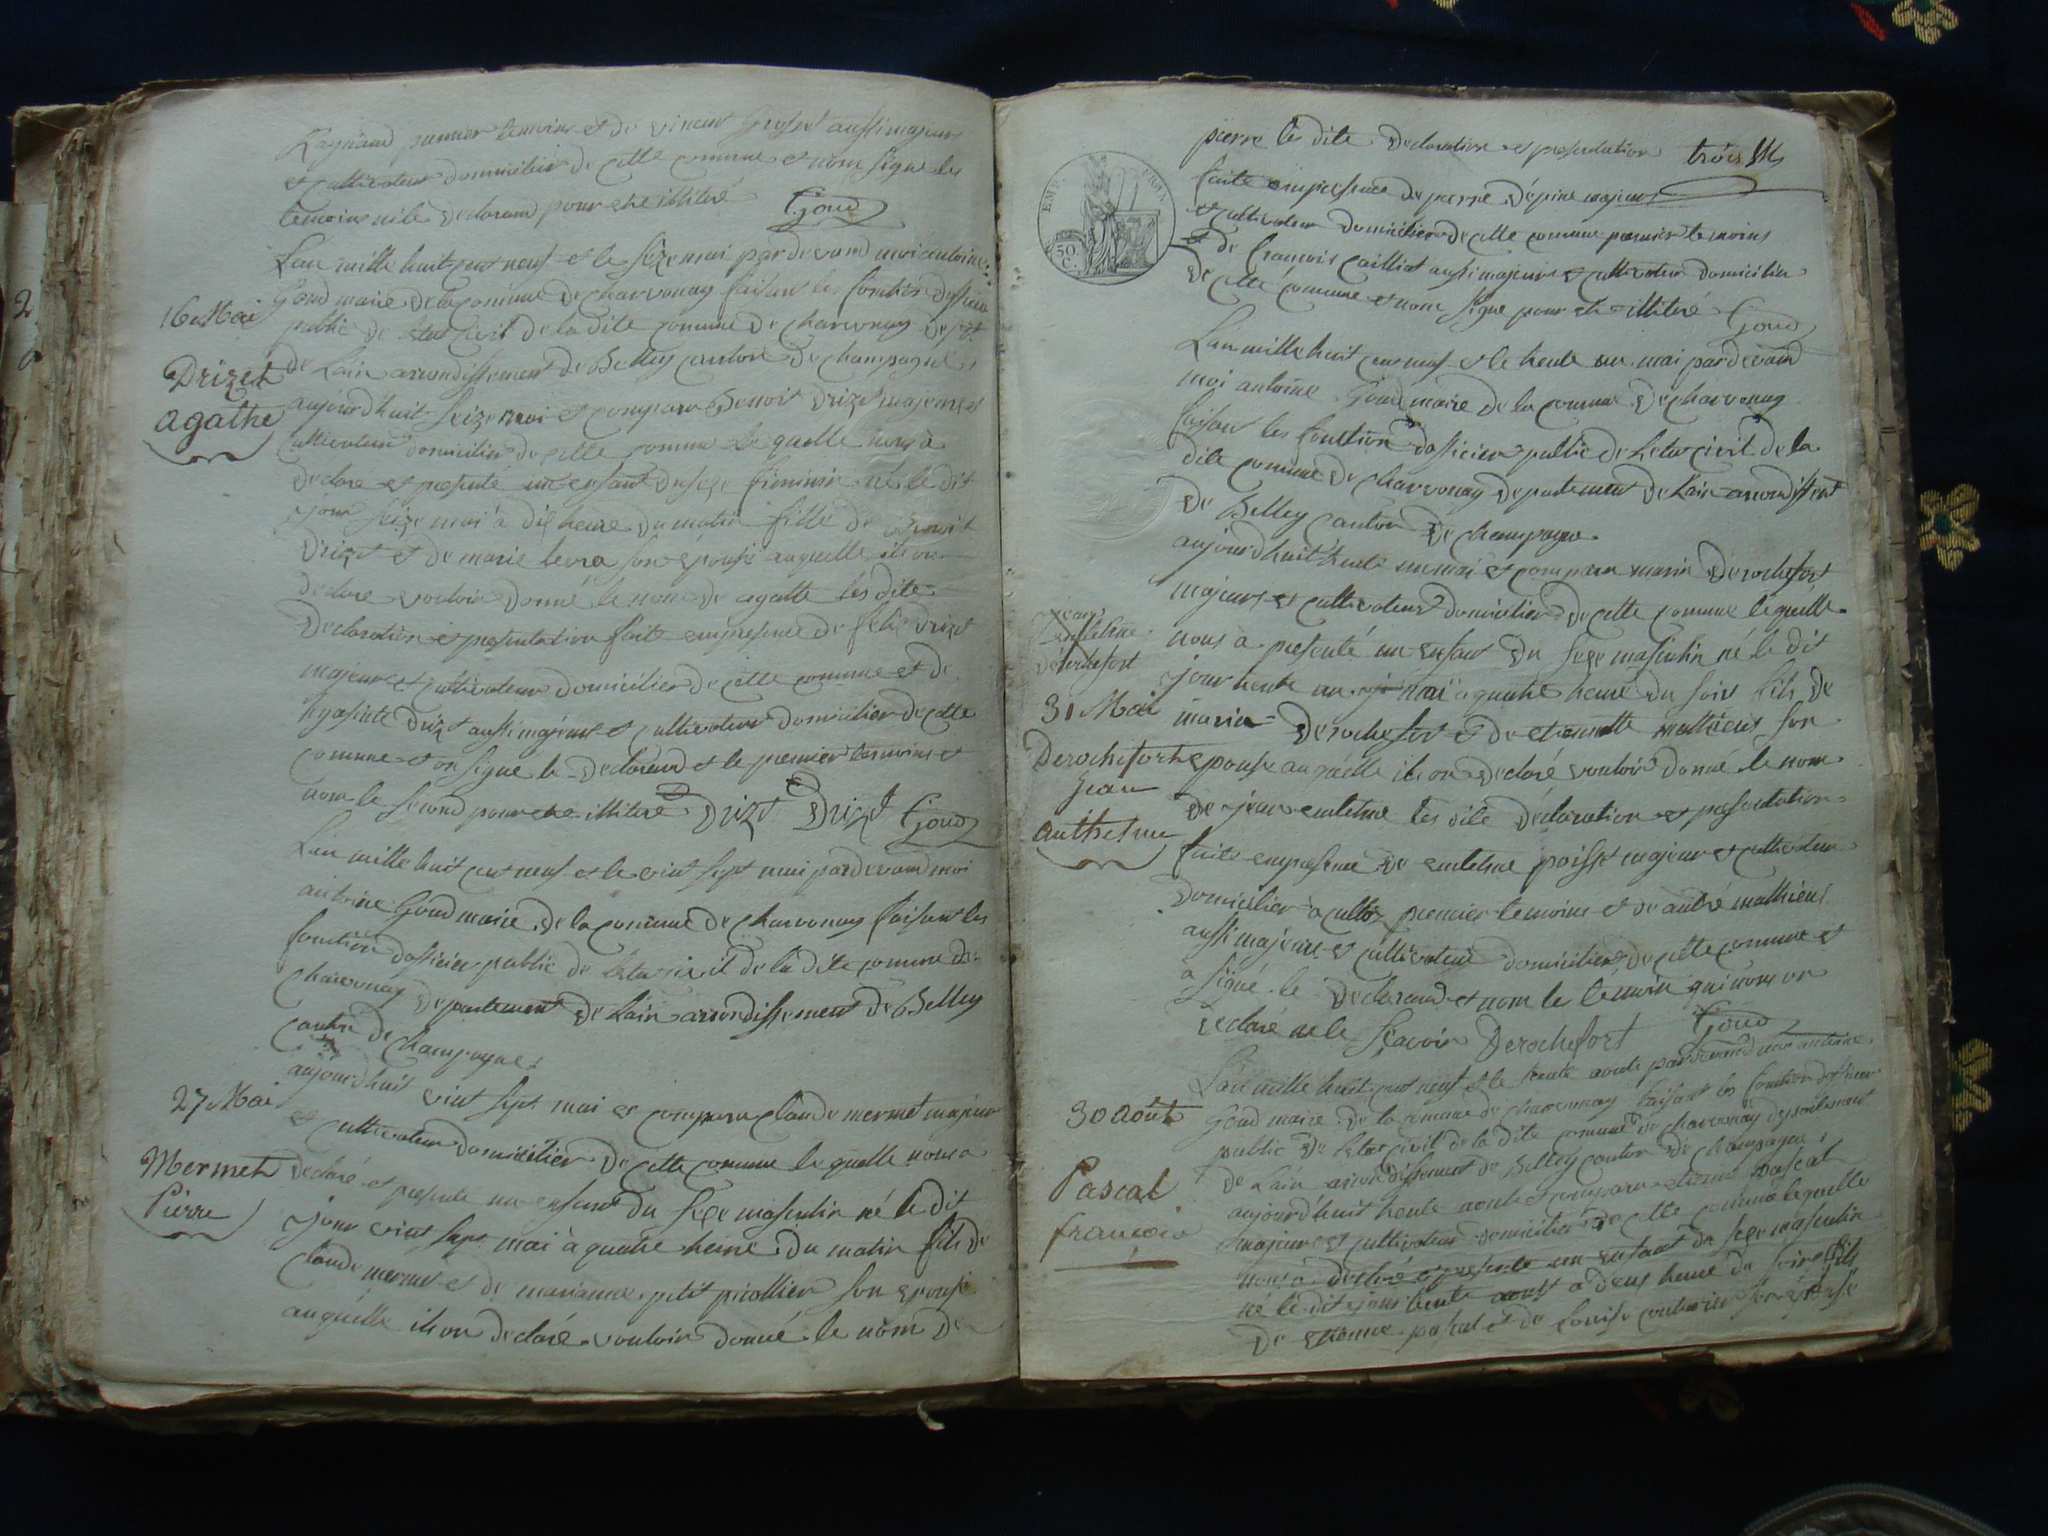 premier temoins et de vincent aussi majeur
et cultivateur domicilier de cette comune et nom signe les
temoins ni le declarand pour etre illitéré Goud
L'an mille huit cent neuf et le seize mai pardevand moi antoine
Goud maire de la comune de charvonay faisant les fonction dofficier
16 Mai
public de letat civil de la dite comune de charvonay dept
Drizet
agathe
de Lain arrondissement de Belley canton de champagne
aujourdhuit seize mai et comparu Benoit Drizet majeur et
cultivateur domicilier de cette comune le quelle nous à
declare et presenté un enfant du sexe feminin né le dit
jour seize mai à dix heure du matin fille de Benoit
Drizet et de marie levra son epouse auquelle ils on
declare vouloir donné le nom de agatte les dite
Declaration et presentation faite en presence de felix Drizet
majeur et cultivateur domicilier de cette comune et de
hyasinte Drizet aussi majeur et cultivateur domicilier de cette
comune et on signe le declarand et le premier temoins et
nom le second pour etre illitéré Drizet Drizet Goud
L'an mille huit cent neuf et le vint sept mai pardevand moi
antoine Goud maire de la comune de charvonay faisant les
fonction dofficier public de letat civil de la dite comune de
charvonay departement de Lain arrondissement de Belley
canton de champagne
27 Mai
aujourdhuit vint sept mai et comparu Claude mermet majeur
et cultivateur domicilier de cette comune le quelle nous a
Mermet
Pierre
declaré et presente un enfant du sexe masculin né le dit
jour vint sept mai à quatre heure du matin fils de
Claude mermet et de marianne petit picollier son epouse
auquelle ils on declaré vouloir donné le nom de
pierre les dite declaration et presentation trois
EMP. FRAN.
50 C.
faite en presence de pierre Dépine majeur
et cultivateur domicilier de cette comune premier temoins
et de francois cailliat aussi majeur et cultivateur domicilier
de cette comune et nom signe pour etre illitéré Goud
L'an mille huit cent neuf et le trente un mai pardevand
moi antoine Goud maire de la comune de charvonay
faisant les fonction dofficier public de letat civil de la
dite comune de charvonay departement de Lain arrondissent
de Belley canton de champagne
aujourdhuit trente un mai et comparu marin Derochefort
majeur et cultivateur domicilier de cette comune le quelle
jean
antelme
derochefort
nous a presenté un enfant du sexe masculin né le dit
jour trente un mai à quatre heure du soir fils de
31 Mai
marin Derochefort et de etiennette mathieut son
Derochefort
jean
anthelme
epouse auquelle ils on declaré vouloir donné le nom
de jean antelme les dite déclaration et presentation
faite en presence de antelme poisset majeur et cultivateur
domicilier à cultoz premier temoins et de andré mathieut
aussi majeur et cultivateur domicilier de cette comune et
a signé le declarand et nom le temoin qui nous on
declaré ne le scavoir Derochefort Goud
L'an mille huit cent neuf et le trente aoute pardevand moi antoine
30 Août
Goud maire de la comune de charvonay faisant les fonction dofficier
public de letat civil de la dite comune de charvonay departement
Pascal
francois
de Lain arrondissement de Belley canton de champagne
aujourdhuit trente aoute et comparu etienne pascal
majeur et cultivateur domicilier de cette comune le quelle
nous à declaré et presente un enfant du sexe masculin
né le dit jour trente aoust a deux heure du soir fils
de etienne pascal et de Louise couturier son epouse